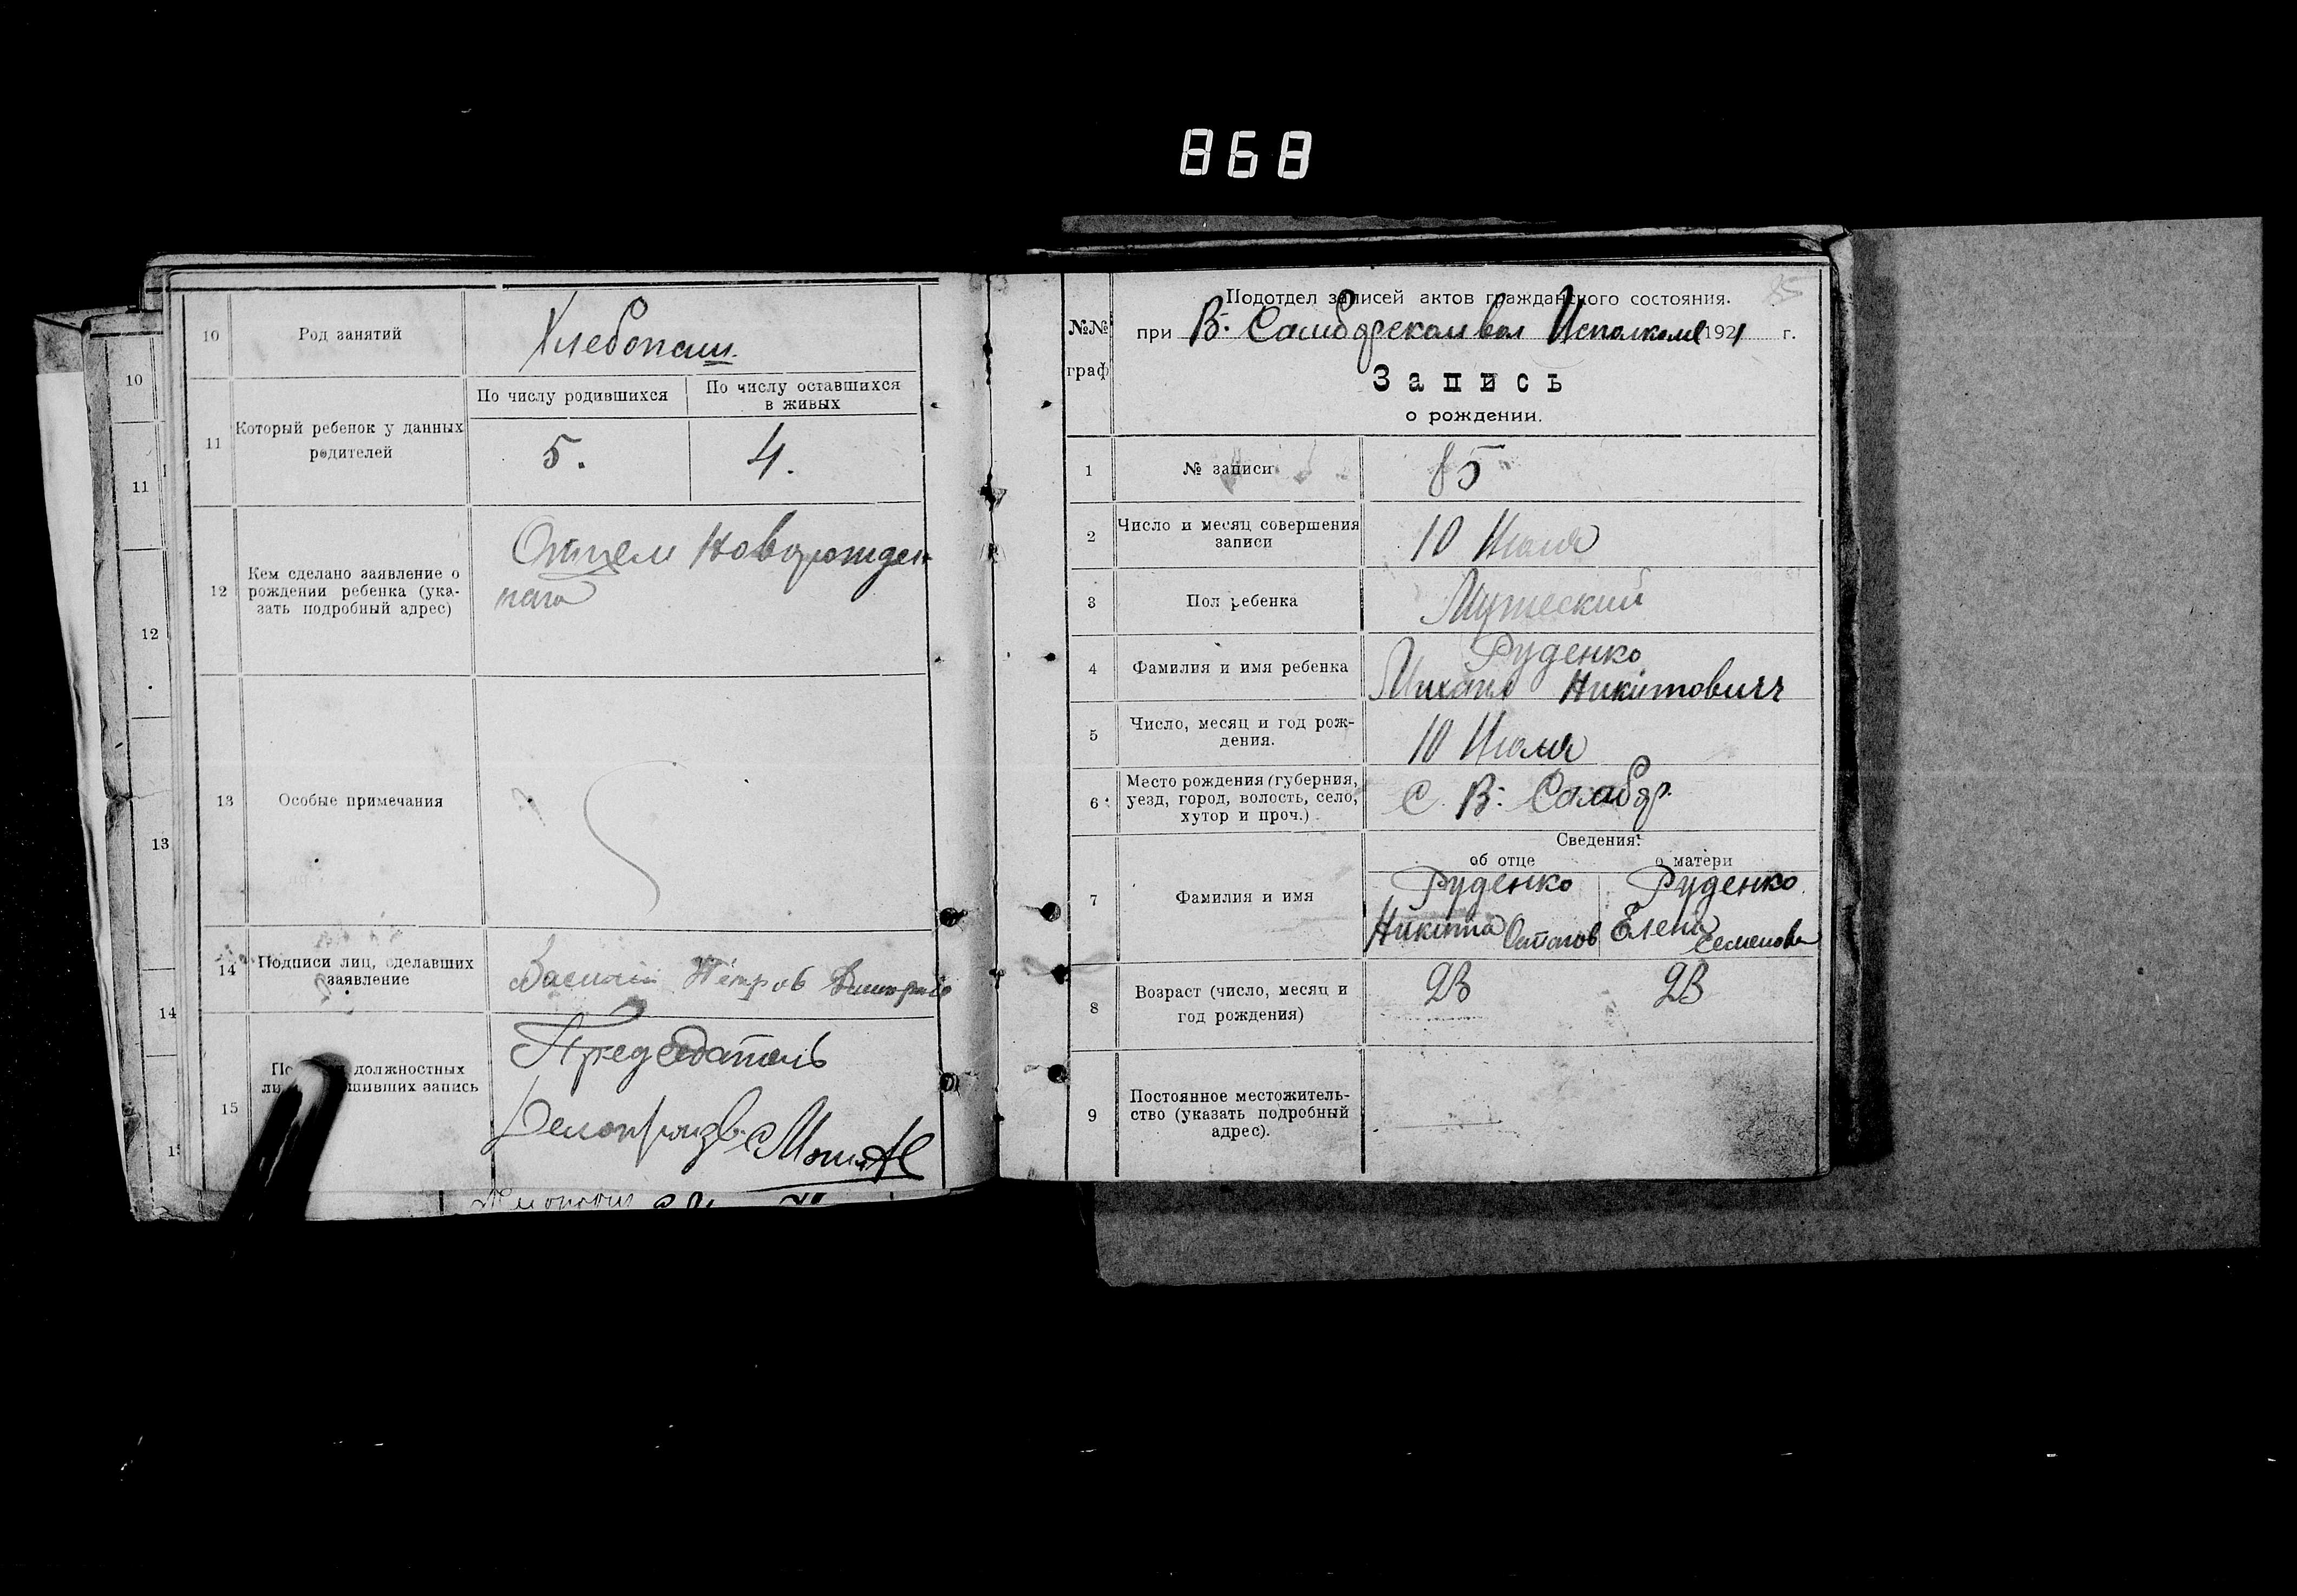 868
10
11
12
13
14
10
Род занятий
Хлебопаш.
11
Который ребенок у данных
родителей
По числу родившихся
По числу оставшихся
в живых
5.
4.
12
Кем сделано заявление о
рождении ребенка (ука-
зать подробный адрес)
Отцем Новорожден
наго
13
Особые примечания
14
Подписи лиц, сделавших
заявление
Василий Петров
15
должностных
запись
Председатель
№№
граф
Подотдел записей актов гражданского состояния.
85
при В: Самборском вол Исполкоме 1921 г.
Запись
о рождении.
1
№ записи
85
2
Число и месяц совершения
записи
10 Июля
3
Пол ребенка
Мужеский
4
Фамилия и имя ребенка
Руденко
Михаил Никитович
5
Число, месяц и год рож-
дения.
10 Июля
6
Место рождения (губерния,
уезд, город, волость, село,
хутор и проч.)
С. В: Самбор.
Сведения:
об отце
о матери
7
Фамилия и имя
Руденко
Никита Остапов
Руденко
Елена Семенова
8
Возраст (число, месяц и
год рождения)
9
Постоянное местожитель-
ство (указать подробный
адрес).